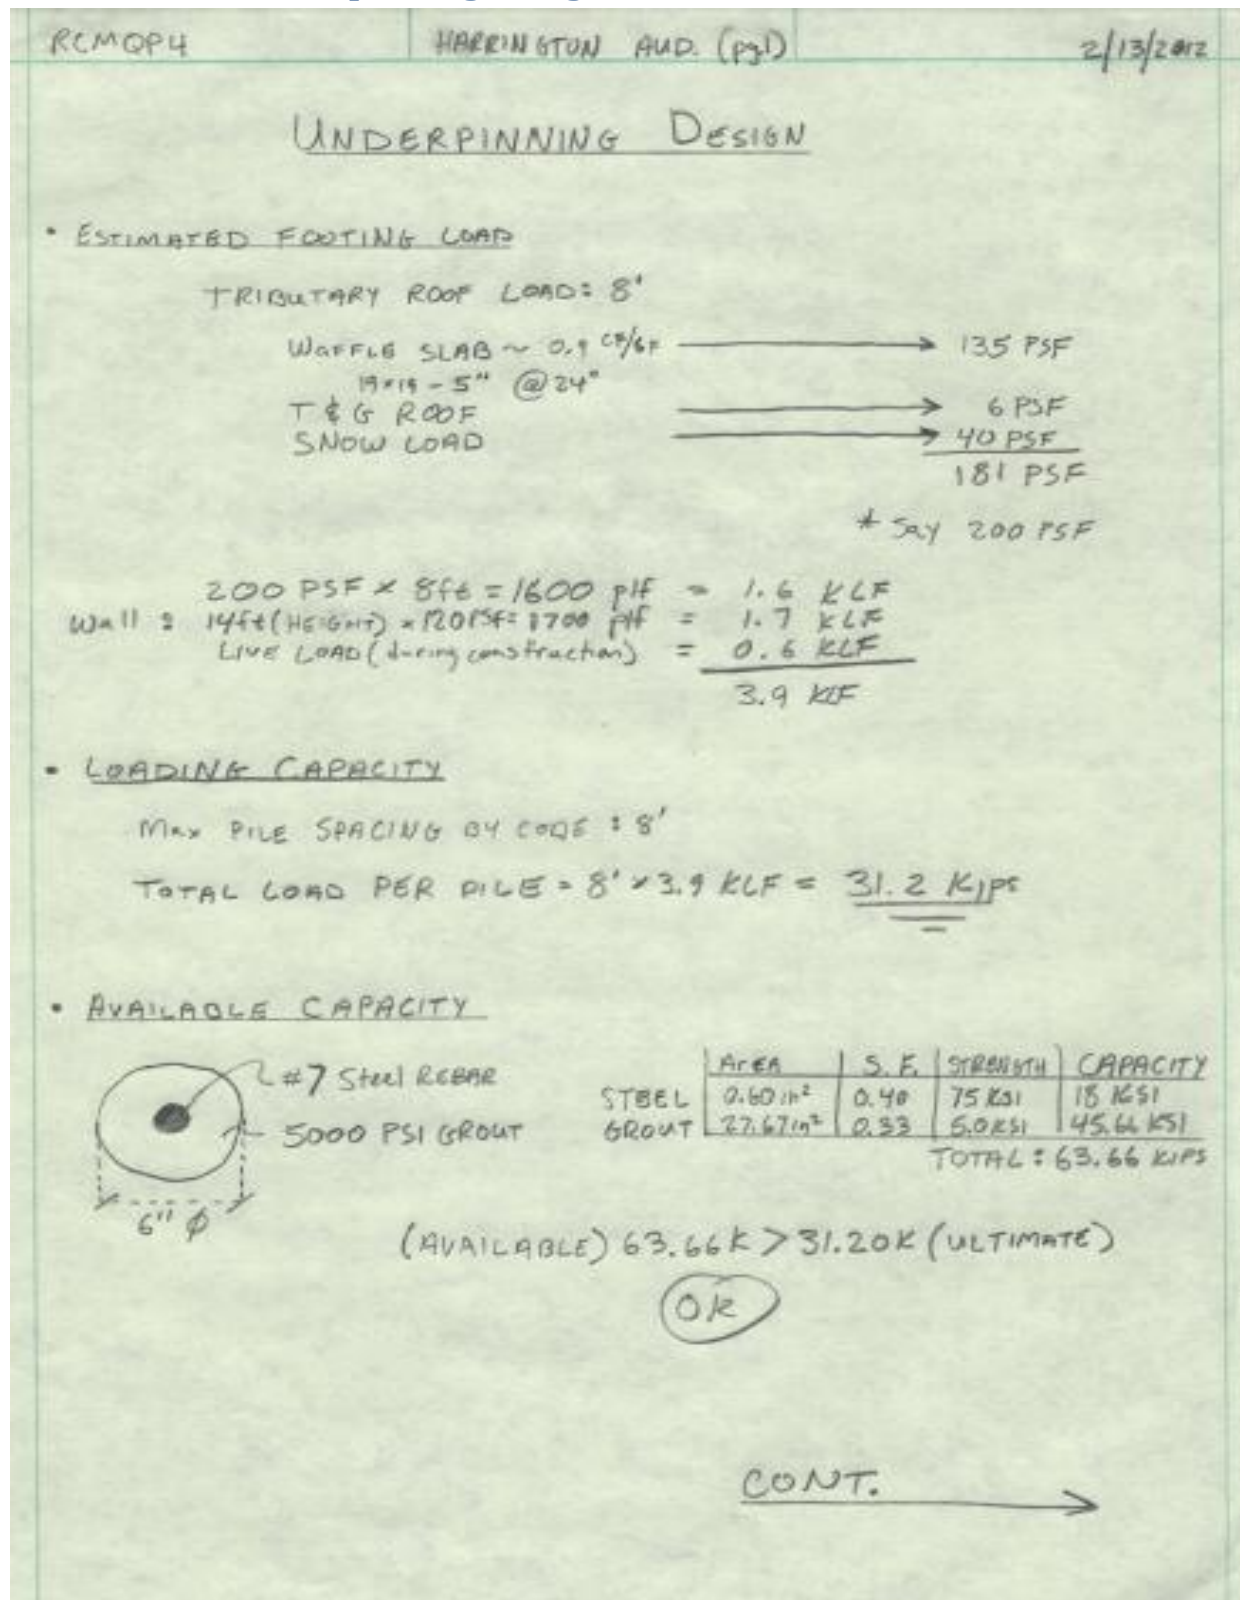 RCMQP4 HARRINGTON AUD. (pg1) 2/13/2012
UNDERPINNING DESIGN
• ESTIMATED FOOTING LOAD
TRIBUTARY ROOF LOAD: 8'
WAFFLE SLAB ~ 0.9 CF/SF → 135 PSF
19×19 - 5" @ 24"
T & G ROOF → 6 PSF
SNOW LOAD → 40 PSF
181 PSF
* Say 200 PSF
200 PSF × 8ft = 1600 plf = 1.6 KLF
Wall : 14ft (HEIGHT) × 120 PSF = 1700 plf = 1.7 KLF
LIVE LOAD (during construction) = 0.6 KLF
3.9 KLF
• LOADING CAPACITY
Max PILE SPACING BY CODE : 8'
TOTAL LOAD PER PILE = 8' × 3.9 KLF = 31.2 Kips
• AVAILABLE CAPACITY
#7 Steel REBAR
5000 PSI GROUT
6" φ
AREA S.F. STRENGTH CAPACITY
STEEL 0.60 in² 0.40 75 KSI 18 KSI
GROUT 27.67 in² 0.33 5.0 KSI 45.66 KSI
TOTAL : 63.66 KIPS
(AVAILABLE) 63.66K > 31.20K (ULTIMATE)
OK
CONT. →